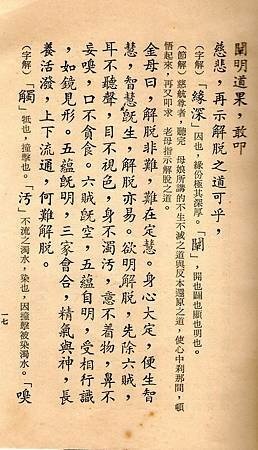 闡明道果，敢叩
慈悲，再示解脫之道可乎，
（字解）「緣深」因也，緣份極其深厚。「闡」，開也闢也顯也明也。
（節解）慈航尊者，聽完　母娘所講的不生不滅之道與反本還原之道，使心中刹那間，頓
悟起來，再又叩求　老母指示解脫之道。
金母曰，解脫非難，難在定慧。身心大定，便生智
慧，智慧旣生，解脫亦易。欲明解脫，先除六賊，
耳不聽聲，目不視色，身不濁汚，意不着物，鼻不
妄嗅，口不貪食。六賊旣空，五蘊自明，受相行識
，如鏡見形。五蘊旣明，三家會合，精氣與神，長
養活潑，上下流通，何難解脫。
（字解）「觸」牴也，撞擊也。「汚」不流之濁水，染也，因撞擊被染濁水。「嗅
一七